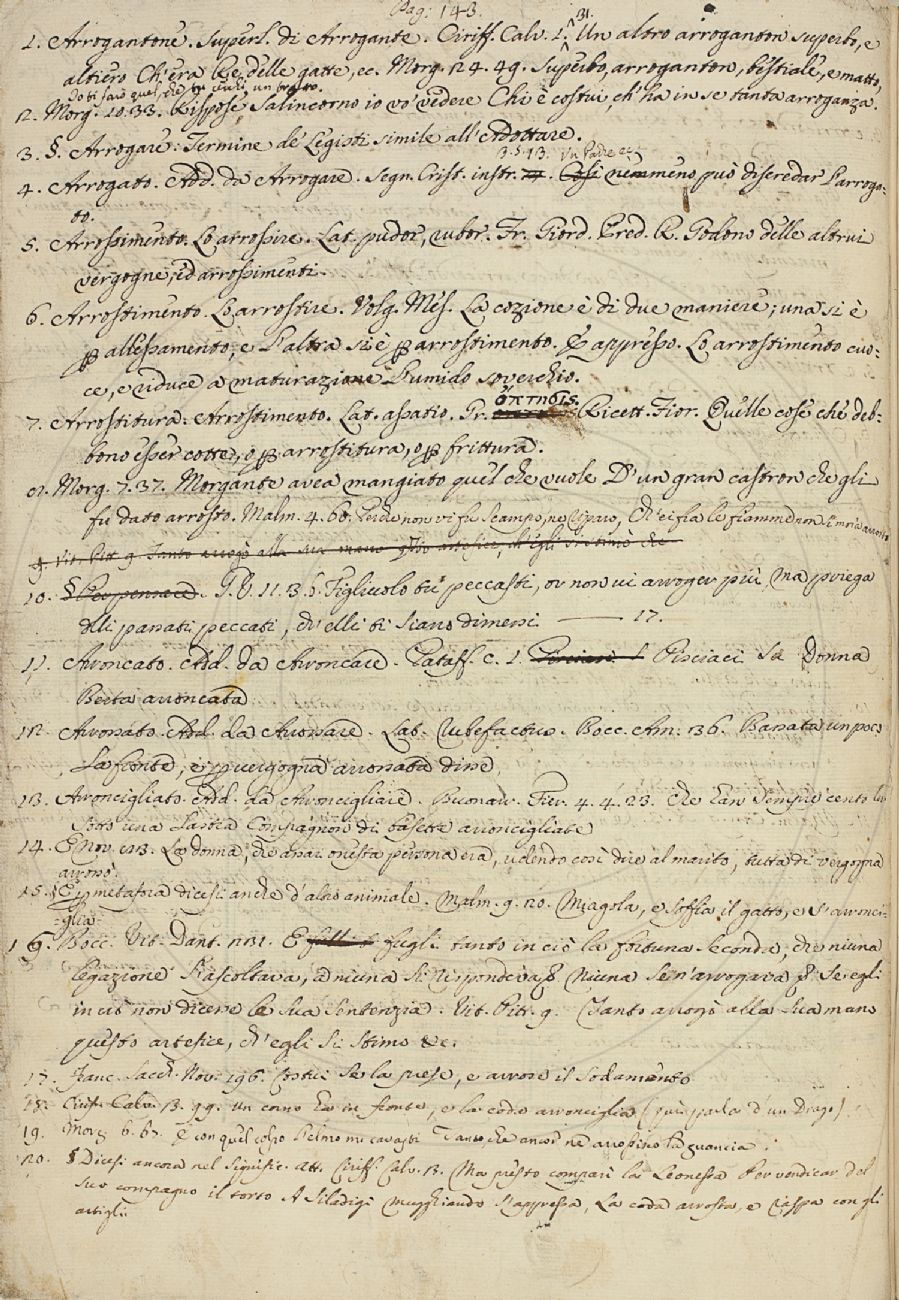 Pag: 143.
1. Arrogantone. Superl. di Arrogante. Ciriff. Calv. 1. 31. Un altro arroganton superbo, e
altiero Ch'era Re delle gatte, ec. Morg. 24. 49. Superbo, arroganton, bestiale, e matto,
Io ti farò quel, che tu
2. Morg. 10. 33. Rispose Salincorno io vo' vedere Chi è costui, ch' ha in se tanta arroganza.
3. §. Arrogare: Termine de' Legisti simile all'Adottare.
3. § 13. Un Padre ec.
4. Arrogato. Add. da Arrogare. Segn. Crist. instr. Così nemmeno può diseredar l'arroga-
to.
5. Arrossimento. Lo arrossire. Lat. pudor, rubor. Fr. Giord. Pred. R. Godono delle altrui
vergogne, ed arrossimenti.
6. Arrostimento. Lo arrostire. Volg. Mes. La cozione è di due maniere; una si è
ꝑ allessamento, e l'altra si è ꝑ arrostimento. E appresso. Lo arrostimento cuo-
ce, e riduce a maturazione l'umido soverchio.
7. Arrostitura: Arrostimento. Lat. assatio. Gr. ὄπτησις. Ricett. Fior. Quelle cose che deb-
bono esser cotte, o ꝑ arrostitura, o ꝑ frittura.
8. Morg. 7. 37. Morgante avea mangiato quel che vuole D'un gran castron che gli
fu dato arrosto. Malm. 4. 60. Perchè non vi fu scampo, ne riparo, Ch'ei fra le fiamme non si moria arrosto
9. Vit. Pitt. 9. Tanto arrogò alla sua mano questo artefice, ch'egli si stimò che
10. § T. B. 11. 3. 5. Figliuolo tu peccasti, or non vi arroger più, ma priega
delli passati peccati, ch'elli ti siano dimessi —— 17.
11. Arroncato. Add. da Arroncare. Pataff. c. 1. Pisciaci la Donna
Berta arroncata
12. Arrossato. Add. da Arrossare. Lat. rubefactus. Bocc. Am. 136. Bassata un poco
la fronte, e ꝑ vergogna arrossata disse
13. Arroncigliato. Add. da Arroncigliare. Buonar. Fier. 4. 4. 23. Che han sempre cento
sotto una lancia Compagnon di basette arroncigliate
14. E Nov. La donna, che assai onesta persona era, udendo così dire al marito, tutta di vergogna
arrossò.
15. § E ꝑ metafora dicesi anche d'altro animale. Malm. 9. 20. Miagola, e soffia il gatto, e s'arronci-
glia.
16. Bocc. Vit. Dant. 231. E fugli tanto in ciò la fortuna seconda, che niuna
legazione s'ascoltava, a niuna si rispondeva &c. Niuna se n'arrogava &c. Se egli
in ciò non dicesse la sua sentenzia. Vit. Pitt. 9. Tanto arrogò alla sua mano
questo artefice, ch'egli si stimò &c.
17. Franc. Sacch. Nov. 196. Costui se la prese, e arrose il sodamento
18. Ciriff. Calv. 3. 99. Un corno ha in fronte, e la coda arronciglia (quì parla d'un Drago).
19. Morg. 6. 67. E con quel colpo l'elmo mi cavasti Tanto che ancor n'arrossino la guancia.
20. § Dicesi ancora nel signific. att. Ciriff. Calv. 3. Ma presto comparì la Leonessa Per vendicar del
suo compagno il torto A Siladigi mugghiando s'appressa, La coda arrosta, e l'aspa con gli
artigli